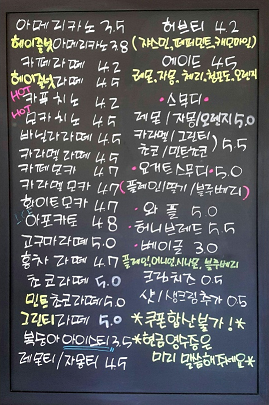 아메리카노 3.5
헤이즐넛아메리카노 3.8
카페라떼 4.2
헤이즐넛라떼 4.5
HOT 카푸치노 4.2
HOT 모카치노 4.2
바닐라라떼 4.5
카라멜라떼 4.5
카페모카 4.7
카라멜모카 4.7
화이트모카 4.7
아포카토 4.8
고구마라떼 5.0
홍차라떼 4.7
초코라떼 5.0
민트초코라떼 5.0
그린티라떼 5.0
복숭아아이스티 3.5
레몬티/자몽티 4.5
허브티 4.2
(쟈스민,페퍼민트,캐모마일)
에이드 4.5
레몬,자몽,체리,청포도,오렌지
·스무디·
레몬/자몽/오렌지 5.0
카라멜/그린티
초코/민트초코 5.5
·요거트스무디·5.0
(플레인/딸기/블루베리)
·와플 5.0
·허니브레드 5.5
·베이글 3.0
플레인,어니언,시나몬,블루베리
크림치즈 0.5
샷/생크림추가 0.5
*쿠폰합산불가!*
*현금영수증은
미리 말씀해주세요*